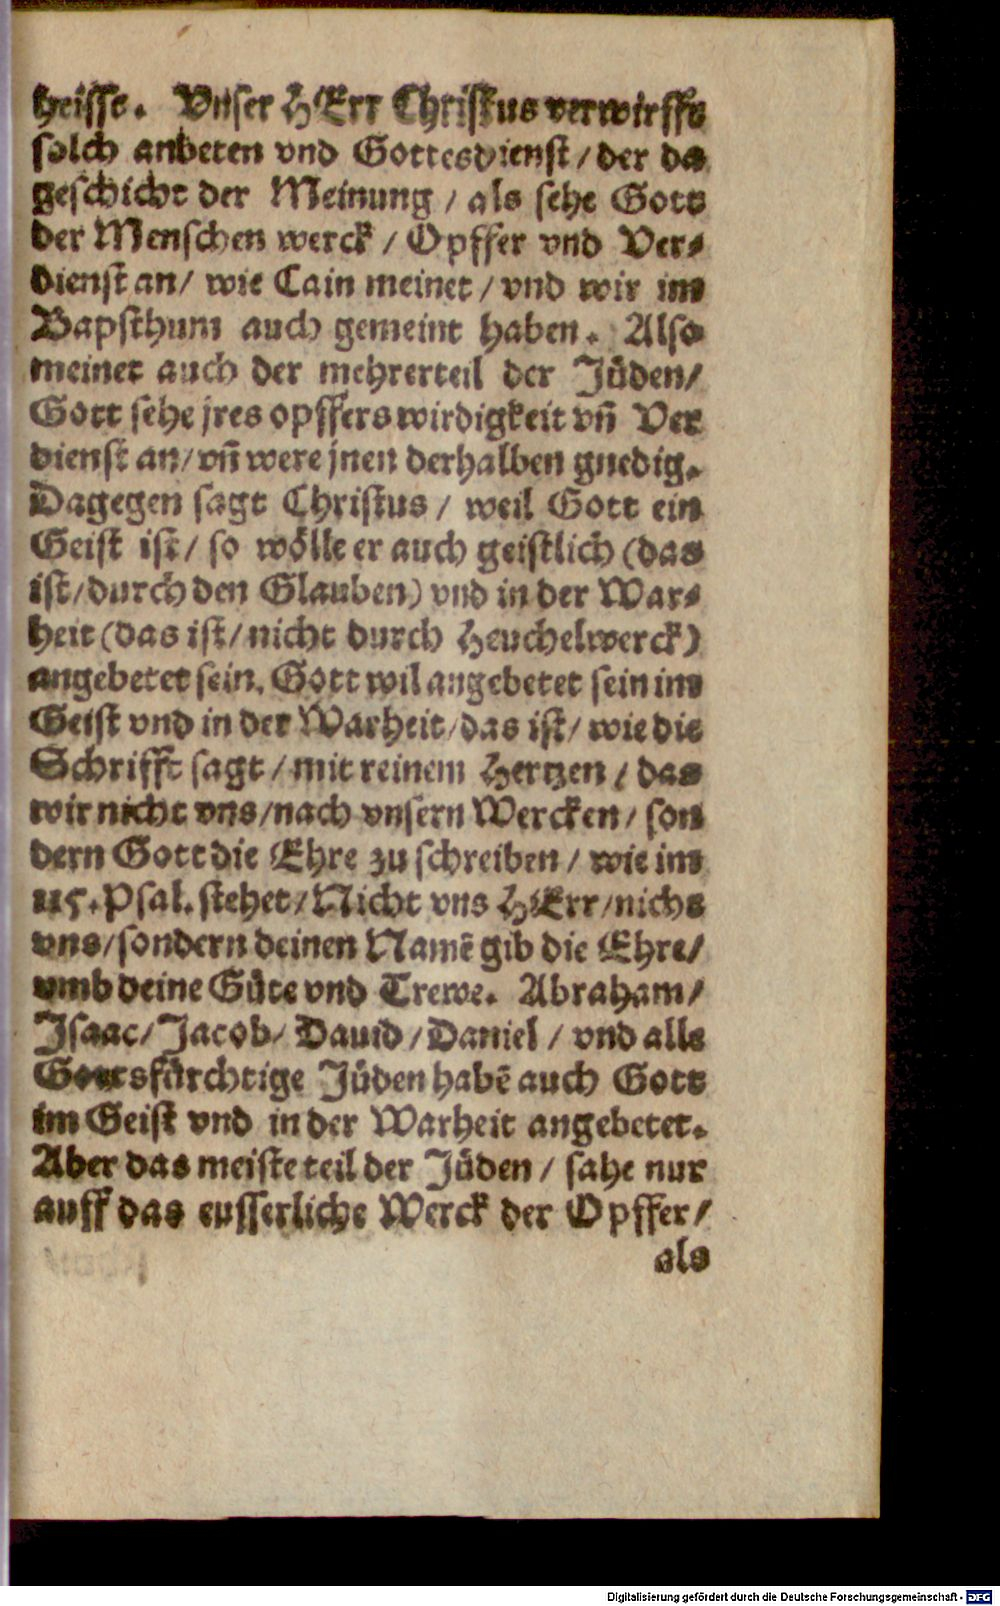 heisse. Vnser HErr Christus verwirfft
solch anbeten vnd Gottesdienst / der da
geschicht der Meinung / als sehe Gott
der Menschen werck / Opffer vnd Ver⸗
dienst an / wie Cain meinet / vnd wir im
Bapsthum auch gemeint haben. Also
meinet auch der mehrerteil der Jüden /
Gott sehe jres opffers wirdigkeit vñ Ver
dienst an / vñ were jnen derhalben gnedig.
Dagegen sagt Christus / weil Gott ein
Geist ist / so wölle er auch geistlich (das
ist / durch den Glauben) vnd in der War⸗
heit (das ist / nicht durch Heuchelwerck)
angebetet sein. Gott wil angebetet sein im
Geist vnd in der Warheit / das ist / wie die
Schrifft sagt / mit reinem Hertzen / das
wir nicht vns / nach vnsern Wercken / son
dern Gott die Ehre zu schreiben / wie im
115. Psal. stehet / Nicht vns HErr / nicht
vns / sondern deinen Namẽ gib die Ehre /
vmb deine Güte vnd Trewe. Abraham /
Isaac / Jacob / Dauid / Daniel / vnd alle
Gottsfürchtige Jüden habẽ auch Gott
im Geist vnd in der Warheit angebetet.
Aber das meiste teil der Jüden / sahe nur
auff das eusserliche Werck der Opffer /
als
Digitalisierung gefördert durch die Deutsche Forschungsgemeinschaft - DFG